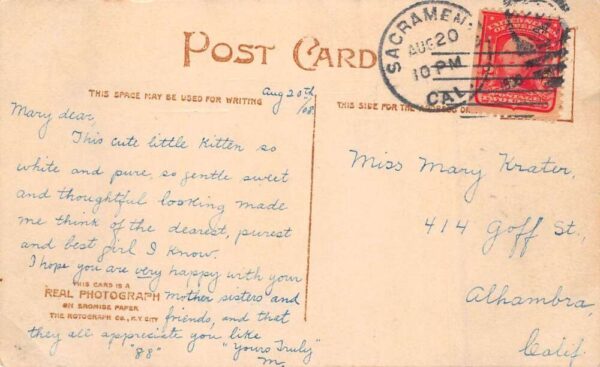 POST CARD
SACRAMENTO
AUG 20
10 PM
CAL.
THIS SPACE MAY BE USED FOR WRITING
THIS SIDE FOR THE ADDRESS
Aug 20th
/08
Mary dear,
This cute little kitten so
white and pure, so gentle sweet
and thoughtful looking made
me think of the dearest, purest
and best girl I know.
I hope you are very happy with your
mother sisters and
friends, and that
they all appreciate you like
"88" "Yours Truly"
M.
THIS CARD IS A
REAL PHOTOGRAPH
ON BROMIDE PAPER
THE ROTOGRAPH CO., N.Y. CITY
Miss Mary Krater,
414 Goff St.,
Alhambra,
Calif